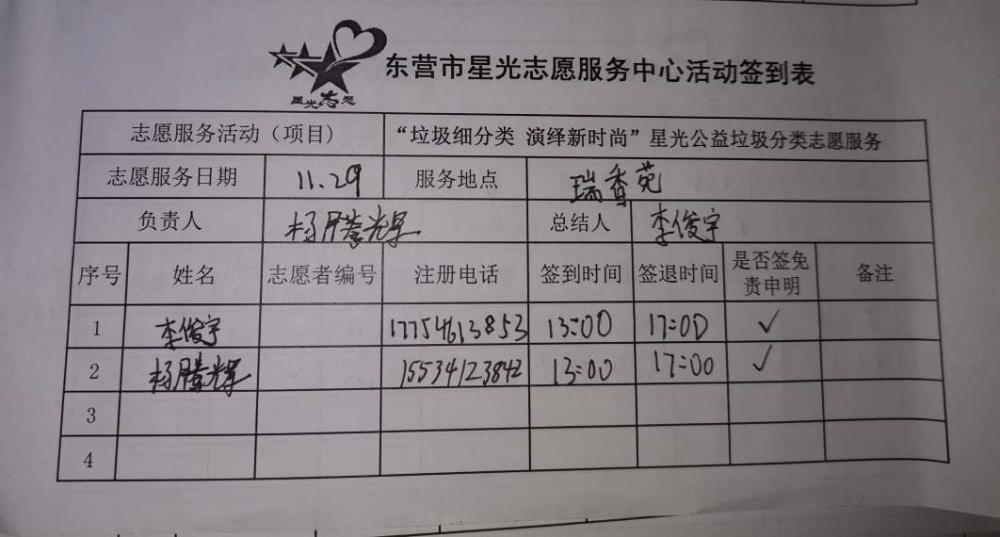 星光志愿
东营市星光志愿服务中心活动签到表
志愿服务活动（项目） “垃圾细分类 演绎新时尚”星光公益垃圾分类志愿服务
志愿服务日期 11.29 服务地点 瑞香苑
负责人 杨腾辉 总结人 李俊宇
序号 姓名 志愿者编号 注册电话 签到时间 签退时间 是否签免责申明 备注
1 李俊宇 17754613853 13:00 17:00 ✓
2 杨腾辉 15534123842 13:00 17:00 ✓
3
4